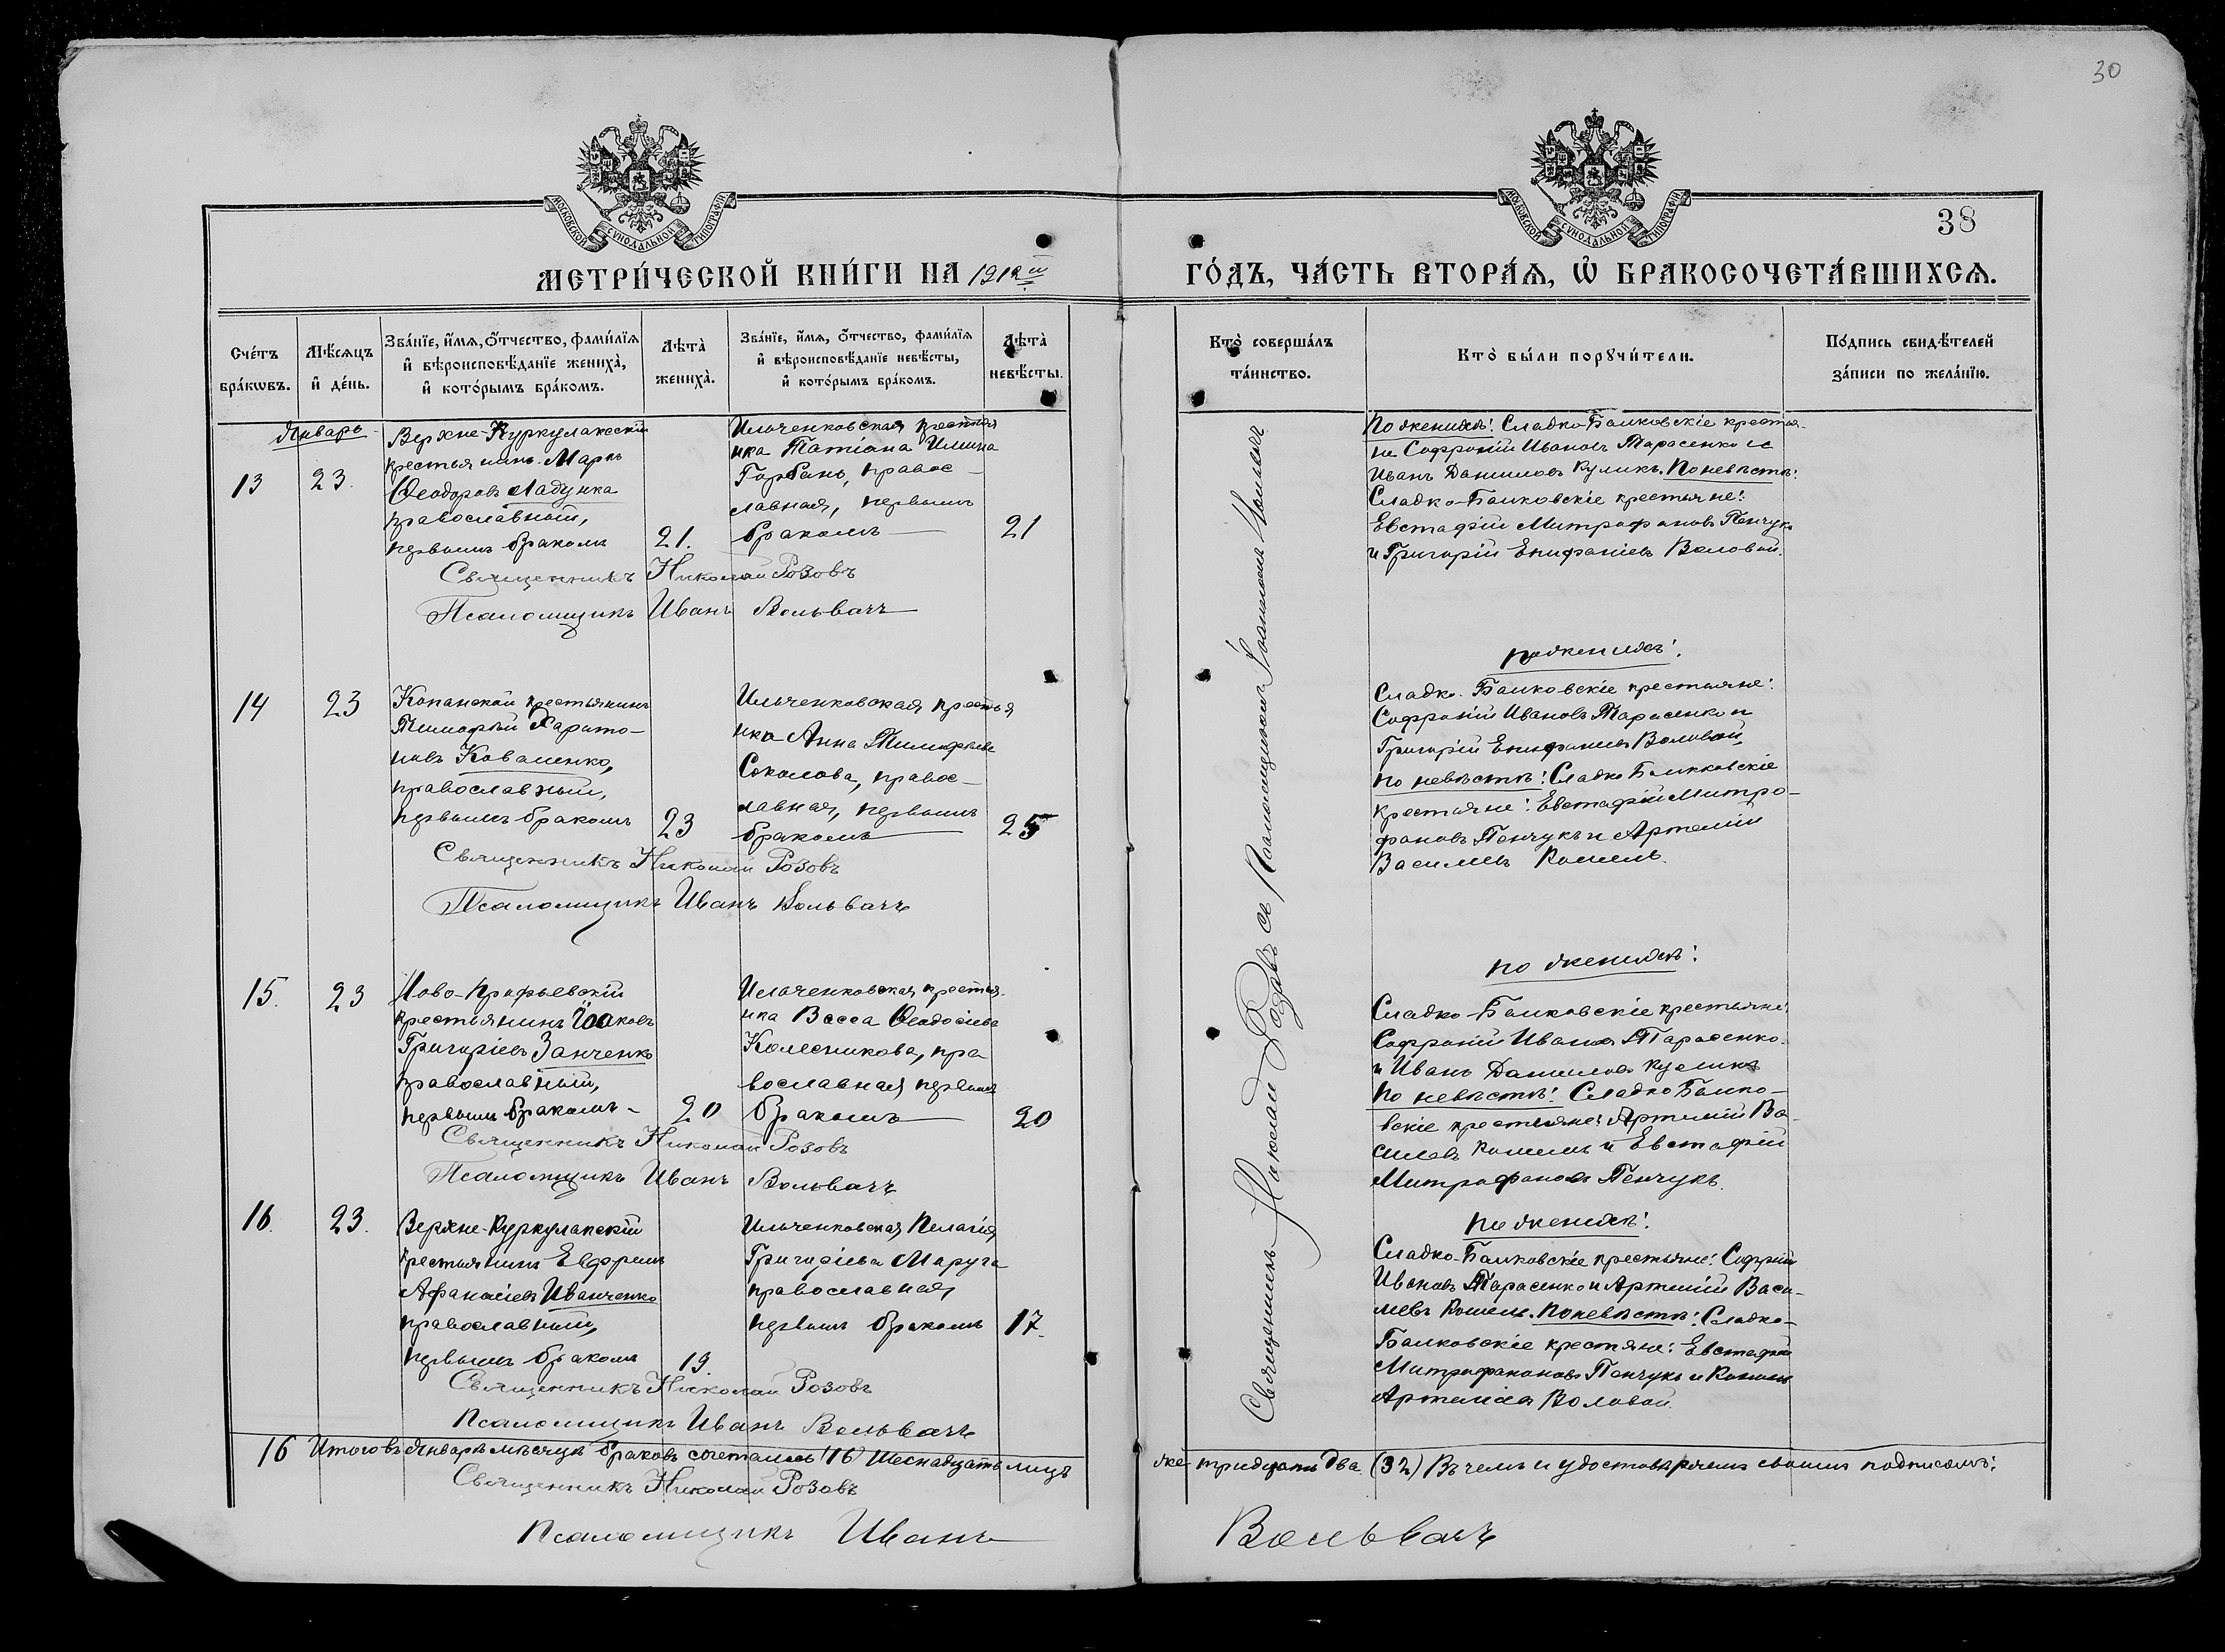 30
38
МОСКОВСКОЙ СѴНОДАЛЬНОЙ ТИПОГРАФІИ
МОСКОВСКОЙ СѴНОДАЛЬНОЙ ТИПОГРАФІИ
МЕТРИ́ЧЕСКОЙ КНИ́ГИ НА 1912й ГО́ДЪ, ЧА́СТЬ ВТОРА́Ѧ, Ѡ҆ БРАКОСОЧЕТА́ВШИХСѦ.
Сче́тъ бра́кѡвъ.
Мѣ́сѧцъ и҆ де́нь.
Зва́нїе, и҆́мѧ, о҆́тчество, фами́лїѧ
и҆ вѣроисповѣ́данїе женихà,
и҆ кото́рымъ бра́комъ.
Лѣтà женихà.
Зва́нїе, и҆́мѧ, о҆́тчество, фами́лїѧ
и҆ вѣроисповѣ́данїе невѣ́сты,
и҆ кото́рымъ бра́комъ.
Лѣтà невѣ́сты.
Ктò соверша́лъ та́инство.
Ктò бы́ли порꙋчи́тели.
По́дпись свидѣ́телей
за́писи по жела́нїю.
Январь
13
23.
Верхне-Куркулакскій
крестьянинъ Маркъ
Ѳеодоровъ Ладунка
православный,
первымъ бракомъ
21.
Ильченковская крестья
нка Татіана Илина
Горбань, правос-
лавная, первымъ
бракомъ
21
Священникъ Николай Розовъ
Псаломщикъ Иванъ Вольвачъ
По женихѣ: Сладко-Балковскіе крестья-
не Софроній Ивановъ Тарасенко и
Иванъ Даниловъ Куликъ. По невѣстѣ:
Сладко-Балковскіе крестьяне:
Евстафій Митрофановъ Пенчукъ
и Григорій Епифаніевъ Воловой.
14
23
Копанской крестьянинъ
Тимофей Харито-
новъ Коваленко,
православный,
первымъ бракомъ
23
Ильченковская крестья
нка Анна Тимофеева
Соколова, правос-
лавная, первымъ
бракомъ
25
Священникъ Николай Розовъ
Псаломщикъ Иванъ Вольвачъ
по женихѣ:
Сладко-Балковскіе крестьяне:
Софроній Ивановъ Тарасенко и
Григорій Епифаніевъ Воловой,
по невѣстѣ: Сладко Балковскіе
крестьяне: Евстафій Митро-
фановъ Пенчукъ и Артемій
Василіевъ Кошель.
15.
23
крестьянинъ Іоаковъ
Григоріевъ Занченко
православный,
первымъ бракомъ
20
Ильченковская крестья-
нка Васса Ѳеодосіева
Колесникова, пра
вославная первымъ
бракомъ
20
Священникъ Николай Розовъ
Псаломщикъ Иванъ Вольвачъ
по женихѣ:
Сладко-Балковскіе крестьяне:
Софроній Ивановъ Тарасенко
и Иванъ Даниловъ Куликъ
По невѣстѣ: Сладко Балко-
вскіе крестьяне: Артемій Ва-
силевъ Кошель и Евстафій
Митрофановъ Пенчукъ.
16.
23.
Верхне-Куркулакскій
крестьянинъ Евфремъ
Афанасіевъ Иванченко
православный,
первымъ бракомъ
19.
Ильченковская Пелагія
Григоріева Маруга
православная
первымъ бракомъ
17.
Священникъ Николай Розовъ
Псаломщикъ Иванъ Вольвачъ
по женихѣ:
Сладко-Балковскіе крестьяне: Софроній
Ивановъ Тарасенко и Артемій Васи-
левъ Кошель. По невѣстѣ: Сладко-
Балковскіе крестяне: Евстафій
Митрофановъ Пенчукъ и
Артеміевъ Воловой.
Священникъ Николай Розовъ съ Псаломщикомъ Іоанномъ
16 Итого въ Январѣ мѣсяцѣ браковъ сочеталось (16) Шеснадцать лицъ
же тридцать два (32) Въ чемъ и удостовѣряемъ своимъ подписомъ:
Священникъ Николай Розовъ
Псаломщикъ Иванъ Вольвачъ